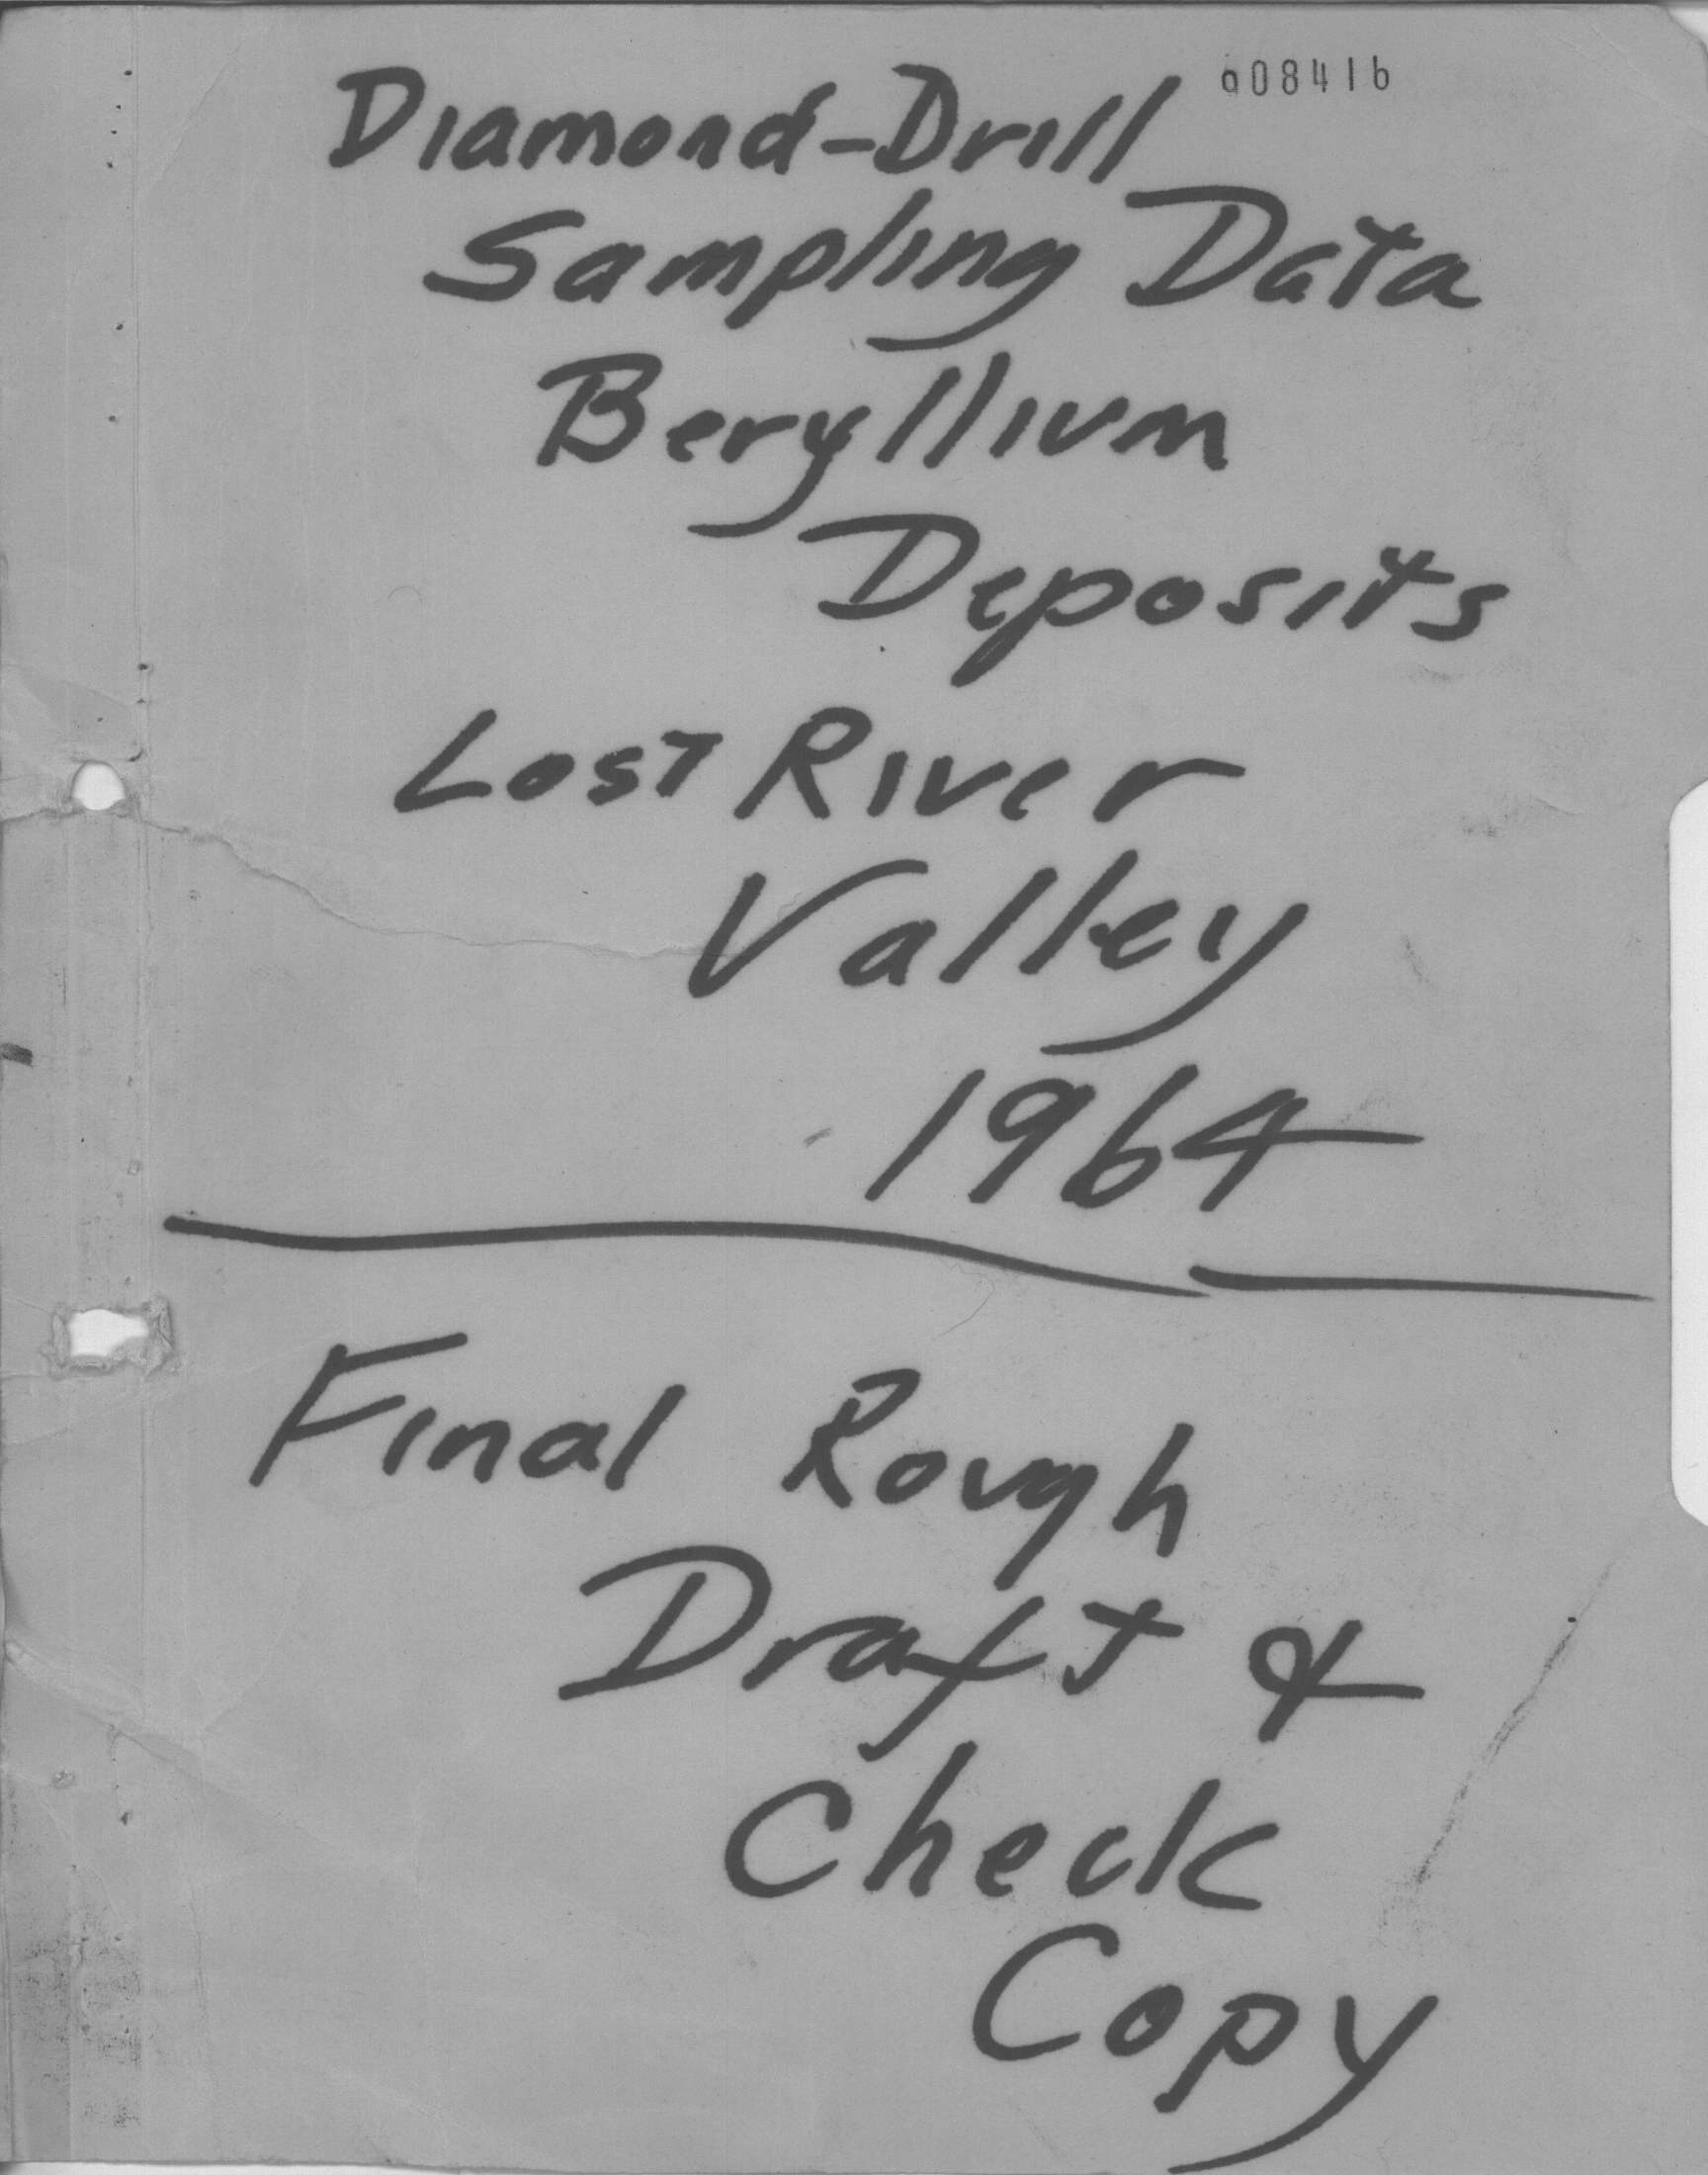 008416
Diamond-Drill
Sampling Data
Beryllium
Deposits
Lost River
Valley
1964
Final Rough
Draft &
Check
Copy